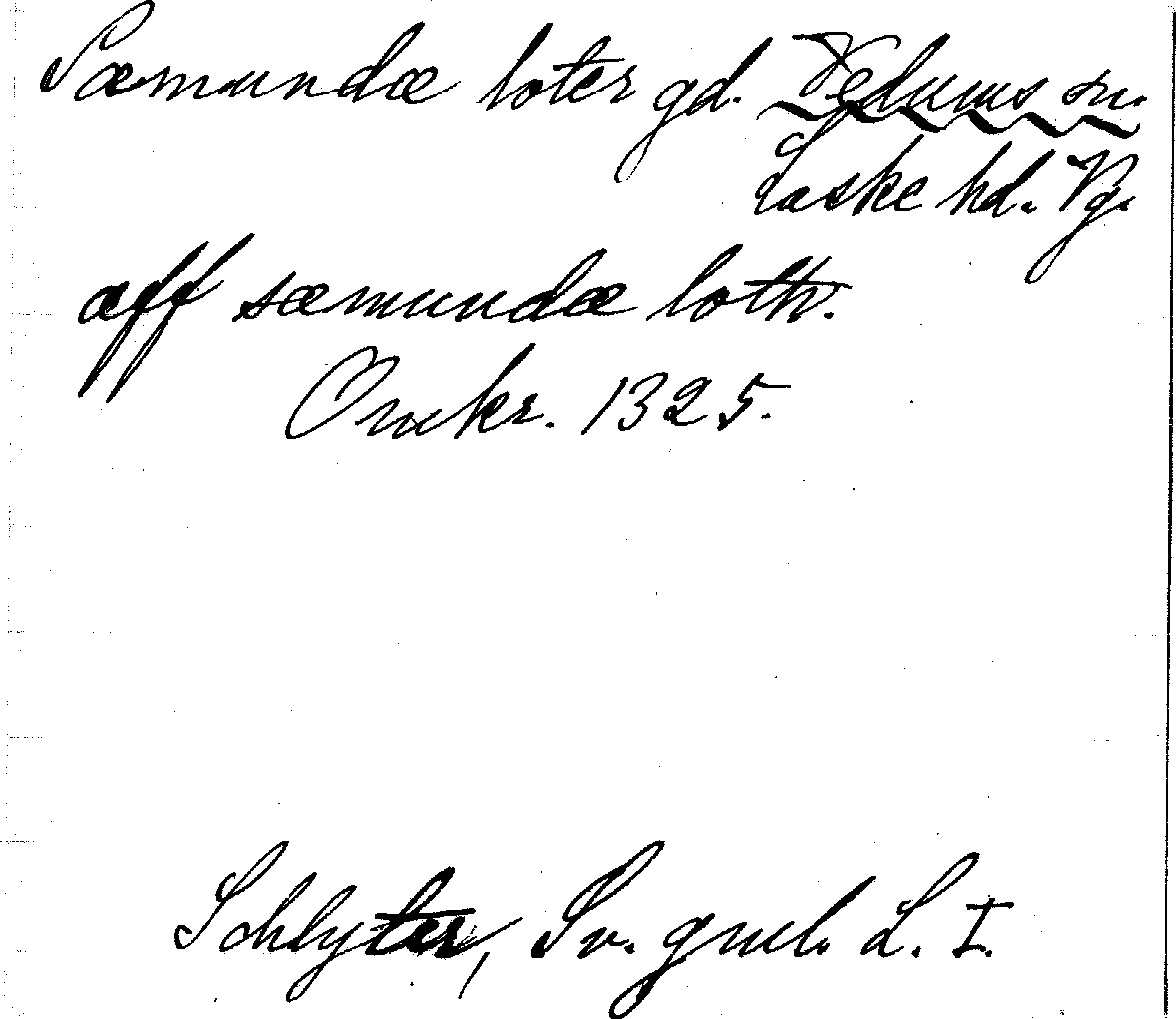 Sæmundæ loter gd. Vedums sn.
Laske hd. Vg.
aff sæmundæ loth.
Omkr. 1325.
Schlyter, Sv. gml. L. I.